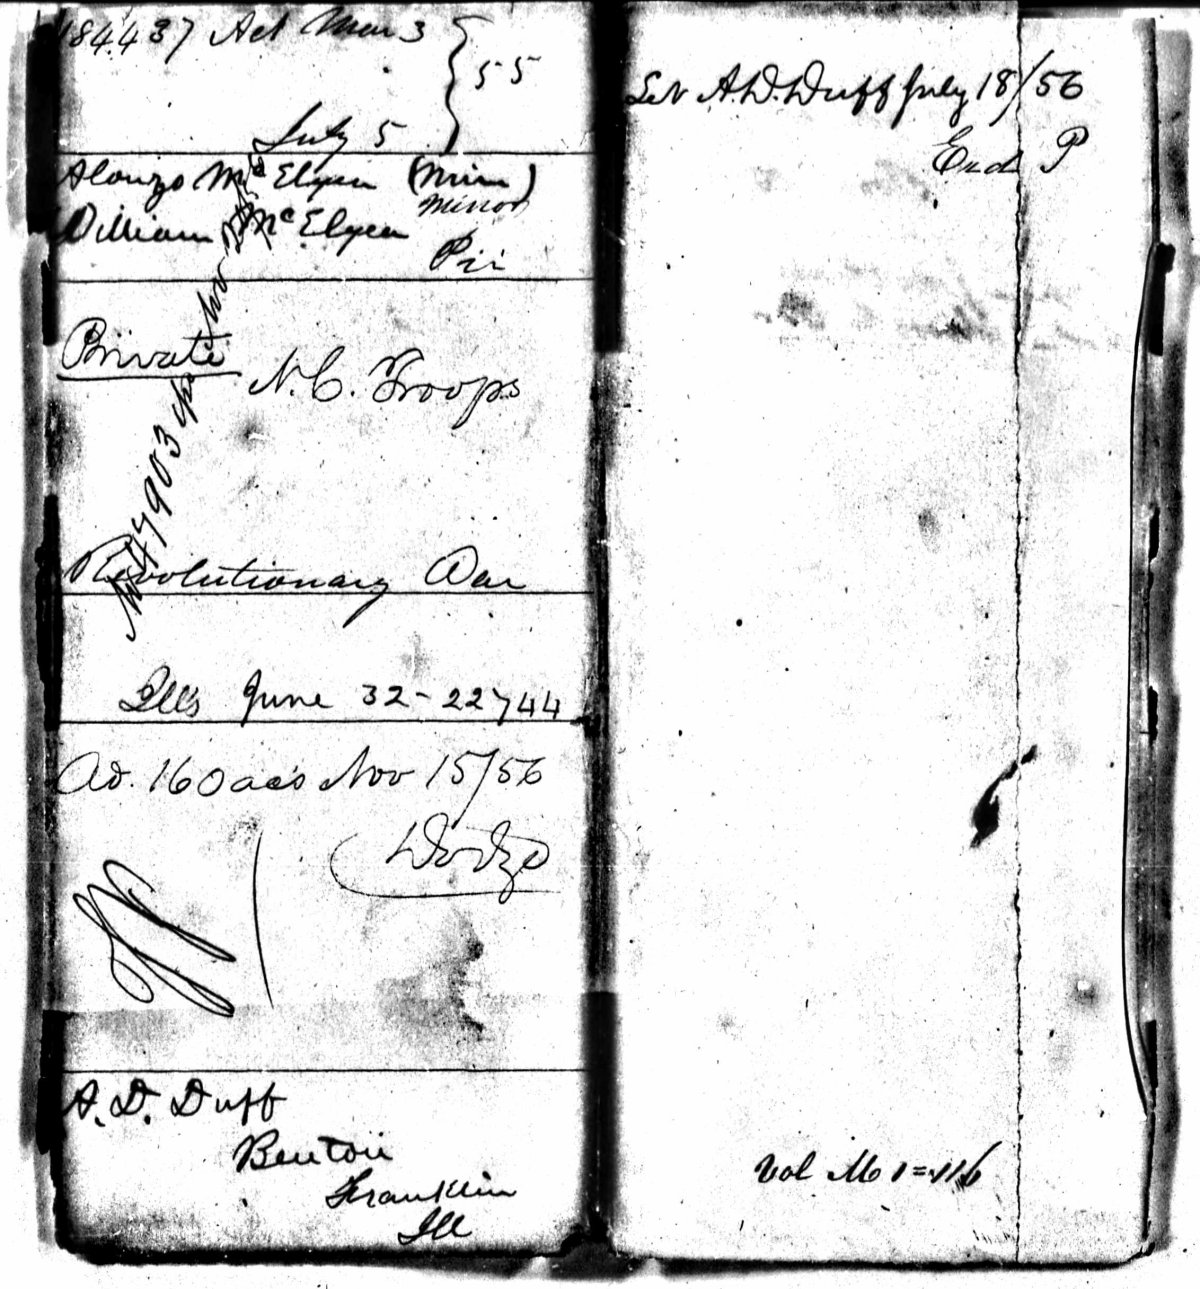 184437 Act Mar 3
55
July 5
Alonzo McElyea (Min)
Minor
William McElyea
Pri
Private
N.C. Troops
47903
Revolutionary War
Ills June 32-22744
Ad. 160 acs Nov 15/56
A. D. Duff
Benton
Franklin
Ill
Let A.D. Duff July 18/56
End P
Vol M 1=416